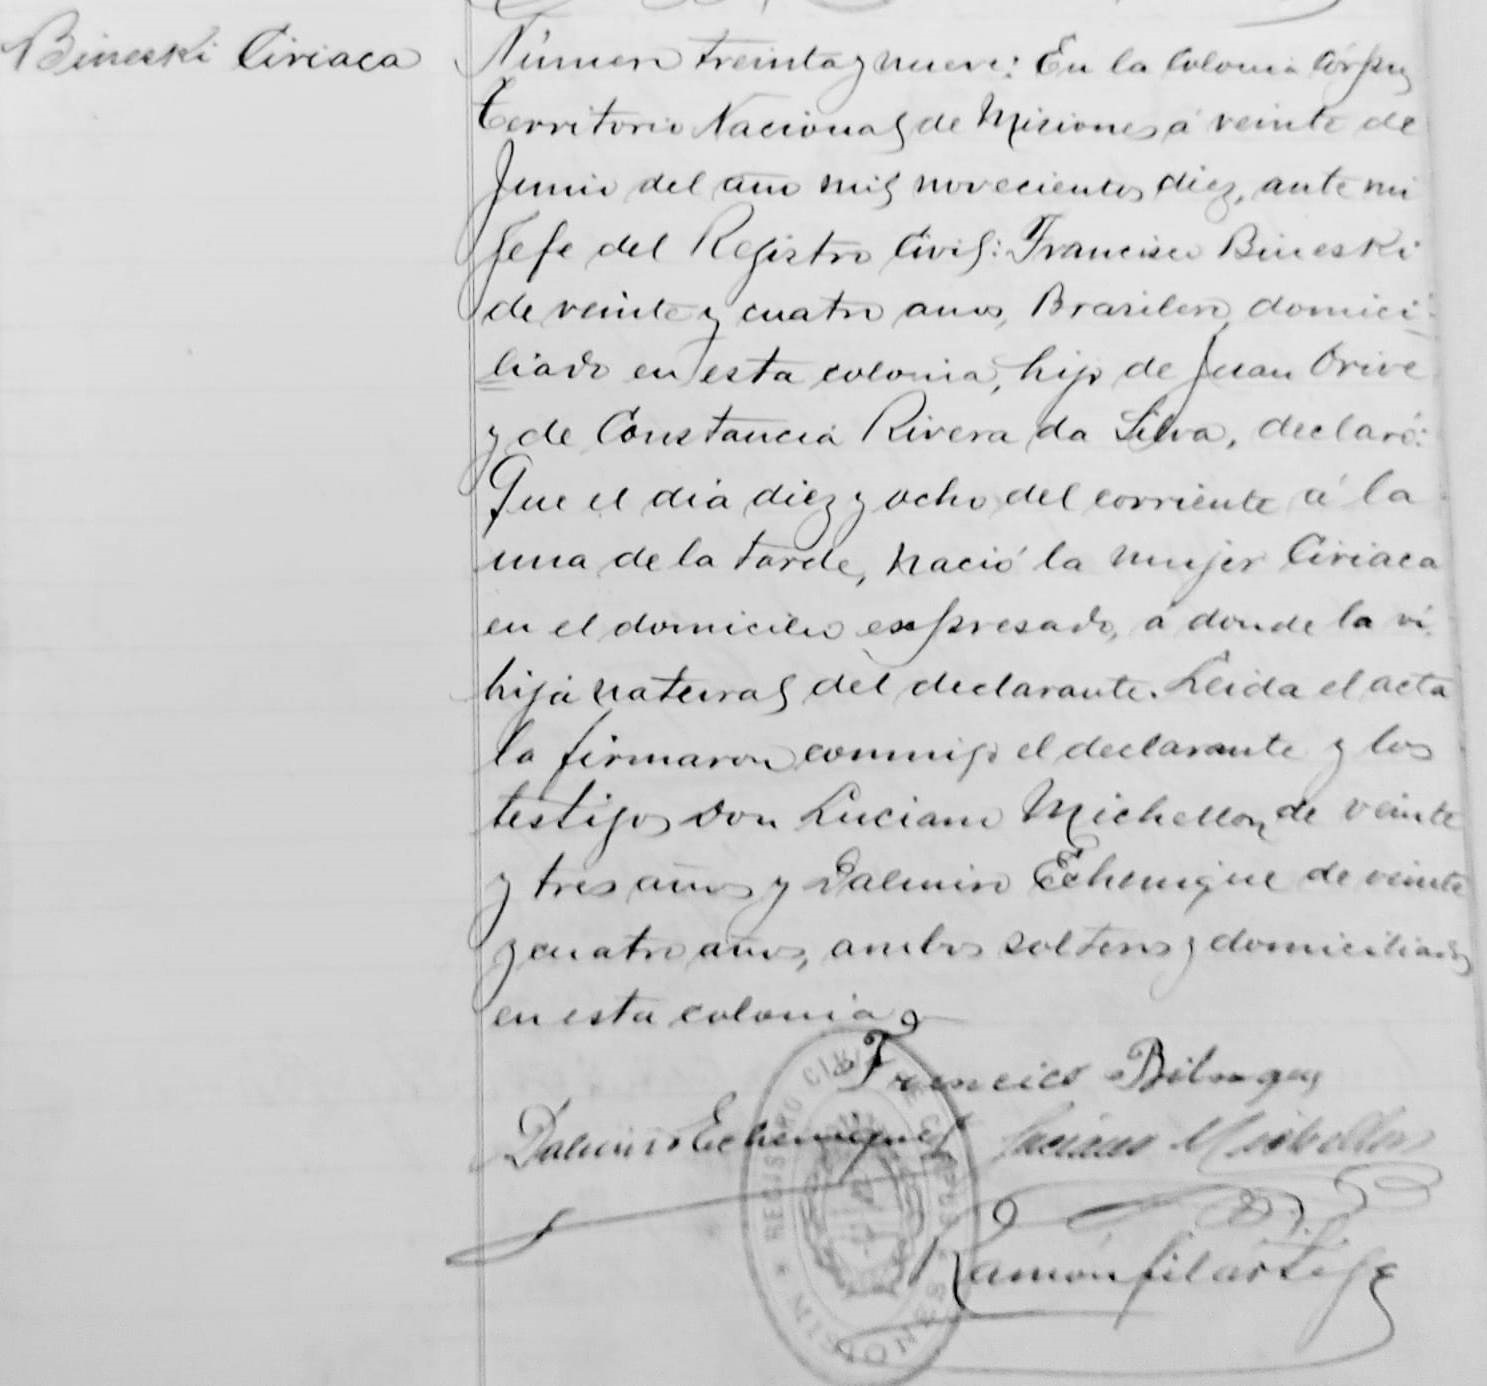 Bineski Ciriaca
Número treinta y nueve: En la Colonia Córpus
Territorio Nacional de Misiones á veinte de
Junio del año mil novecientos diez, ante mi
Jefe del Registro Civil: Francisco Bineski
de veinte y cuatro anos, Brasilero, domici-
liado en esta colonia, hijo de Juan Orive
y de Constancia Rivera da Silva, declaró:
Que el dia diez y ocho del corriente á la
una de la tarde, nació la mujer Ciriaca
en el domicilio expresado, á donde la ví
hija natural del declarante. Leida el acta
la firmaron conmigo el declarante y los
testigos Don Luciano Michellon de veinte
y tres años y Dalmiro Echenique de veinte
y cuatro años, ambos solteros y domiciliados
en esta colonia
Francico
Dalmiro Echenique Luciano Michellon
Ramón Filártiga
REGISTRO CIVIL DE CORPUS MISIONES